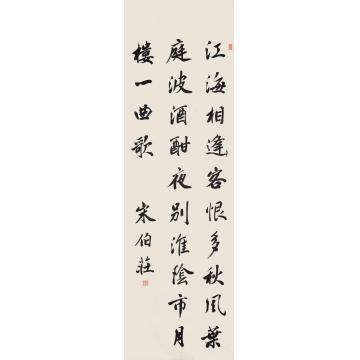 江海相逢客恨多秋風葉
庭波酒酣夜別淮陰市月
樓一曲歌 宋伯莊